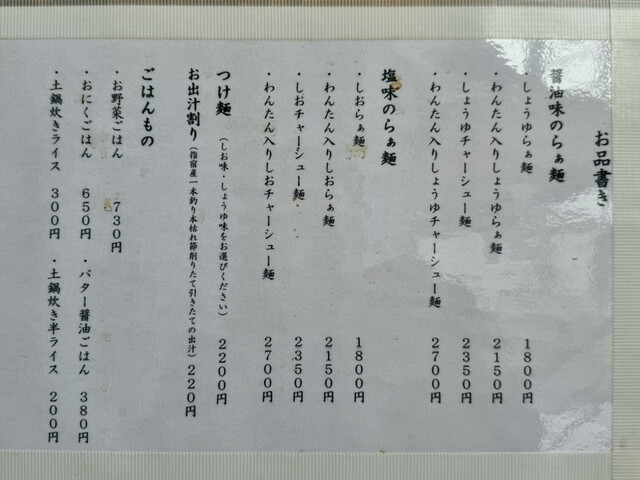 お品書き
醤油味のらぁ麺
・しょうゆらぁ麺 1800円
・わんたん入りしょうゆらぁ麺 2150円
・しょうゆチャーシュー麺 2350円
・わんたん入りしょうゆチャーシュー麺 2700円
塩味のらぁ麺
・しおらぁ麺 1800円
・わんたん入りしおらぁ麺 2150円
・しおチャーシュー麺 2350円
・わんたん入りしおチャーシュー麺 2700円
つけ麺 (しお味・しょうゆ味をお選びください) 2200円
お出汁割り(指宿産一本釣り本枯れ節削りたて引きたての出汁) 220円
ごはんもの
・お野菜ごはん 730円
・おにくごはん 650円 ・バター醤油ごはん 380円
・土鍋炊きライス 300円 ・土鍋炊き半ライス 200円